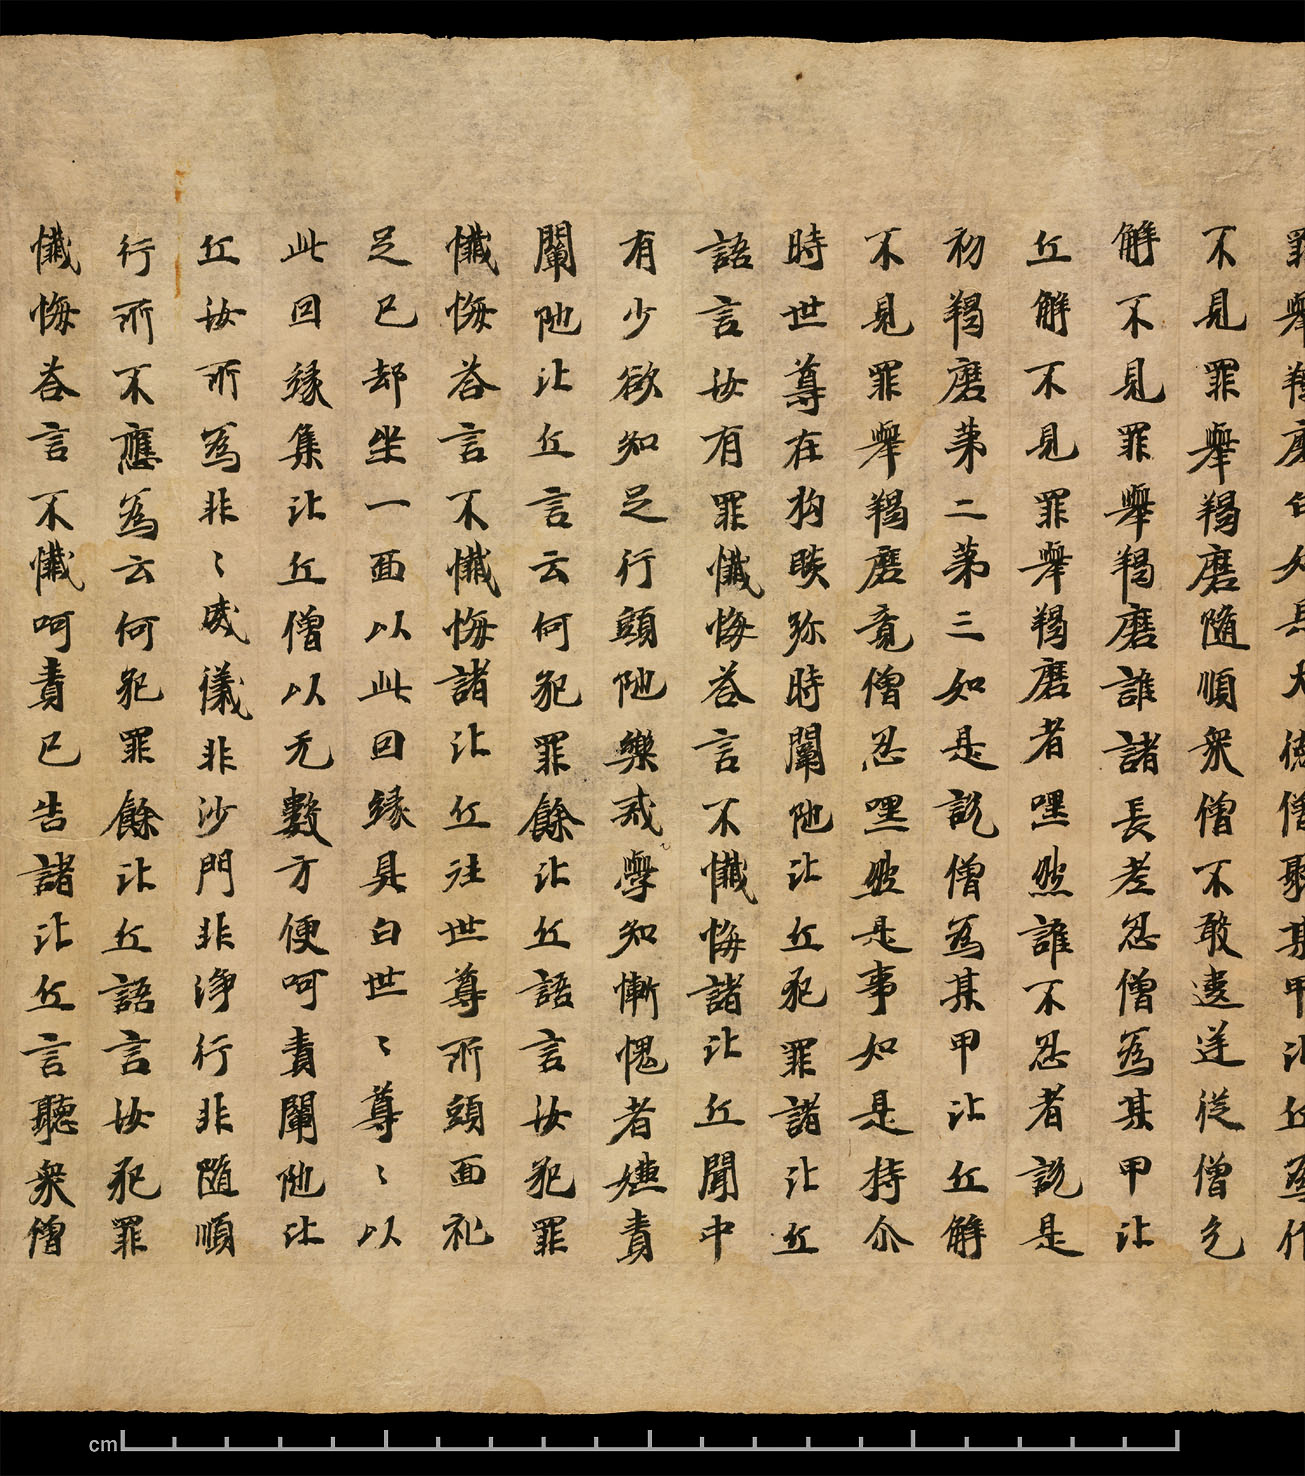 罪舉羯磨白如是大德僧聽某甲比丘爲作
不見罪舉羯磨隨順衆僧不敢違逆從僧乞
解不見罪舉羯磨誰諸長老忍僧爲某甲比
丘解不見罪舉羯磨者嘿然誰不忍者說是
初羯磨苐二苐三如是說僧爲某甲比丘解
不見罪舉羯磨竟僧忍嘿然是事如是持尒
時世尊在拘睒弥時闡陁比丘犯罪諸比丘
語言汝有罪懺悔荅言不懺悔諸比丘聞中
有少欲知足行頭陁樂戒學知慚愧者嫌責
闡陁比丘言云何犯罪餘比丘語言汝犯罪
懺悔荅言不懺悔諸比丘往世尊所頭面礼
足已却坐一面以此因緣具白世〻尊〻以
此因緣集比丘僧以无數方便呵責闡陁比
丘汝所爲非〻威儀非沙門非淨行非隨順
行所不應爲云何犯罪餘比丘語言汝犯罪
懺悔荅言不懺呵責已告諸比丘言聽衆僧
cm